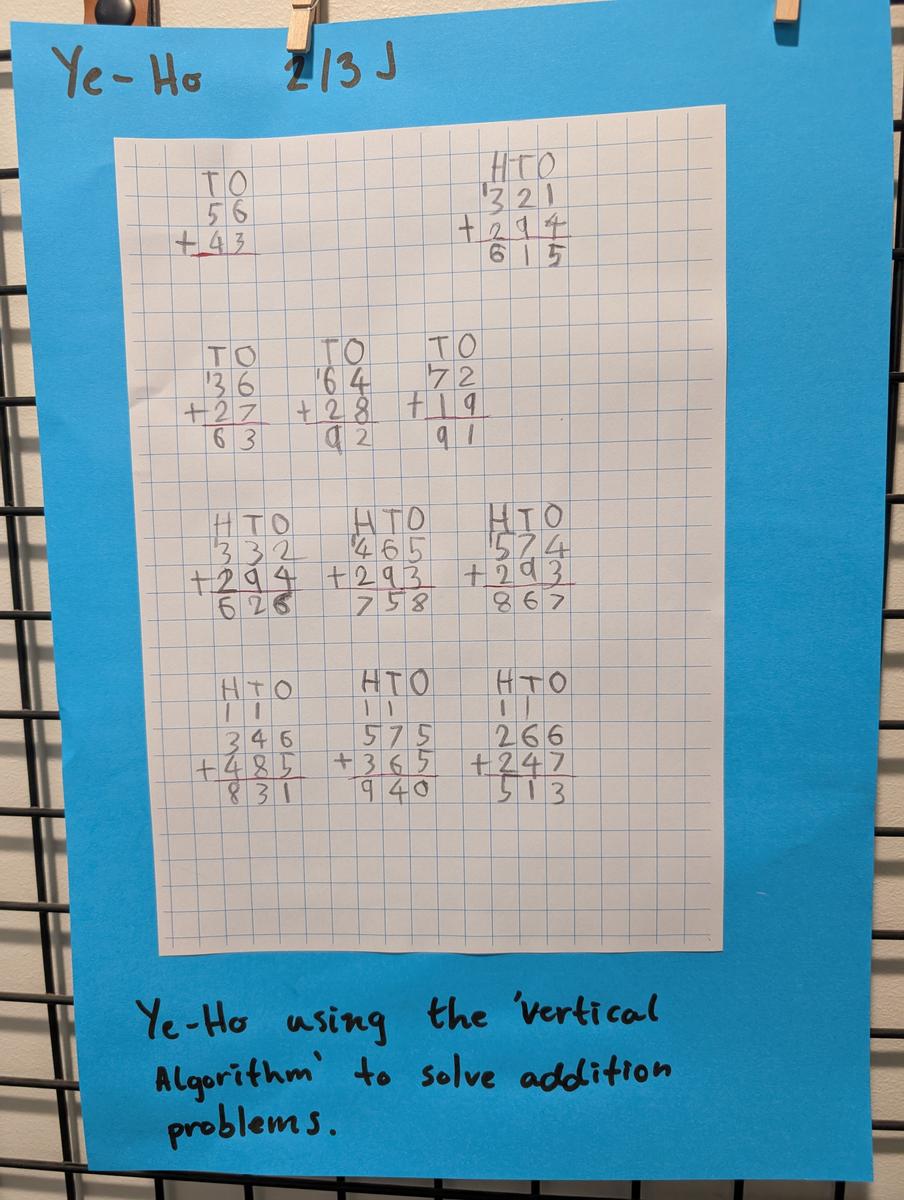 Ye-Ho 2/3 J
T O
5 6
+ 4 3
H T O
'3 2 1
+ 2 9 4
6 1 5
T O
'3 6
+ 2 7
6 3
T O
'6 4
+ 2 8
9 2
T O
'7 2
+ 1 9
9 1
H T O
'3 3 2
+ 2 9 4
6 2 6
H T O
'4 6 5
+ 2 9 3
7 5 8
H T O
'5 7 4
+ 2 9 3
8 6 7
H T O
1 1
3 4 6
+ 4 8 5
8 3 1
H T O
1 1
5 7 5
+ 3 6 5
9 4 0
H T O
1 1
2 6 6
+ 2 4 7
5 1 3
Ye-Ho using the 'vertical
Algorithm' to solve addition
problems.